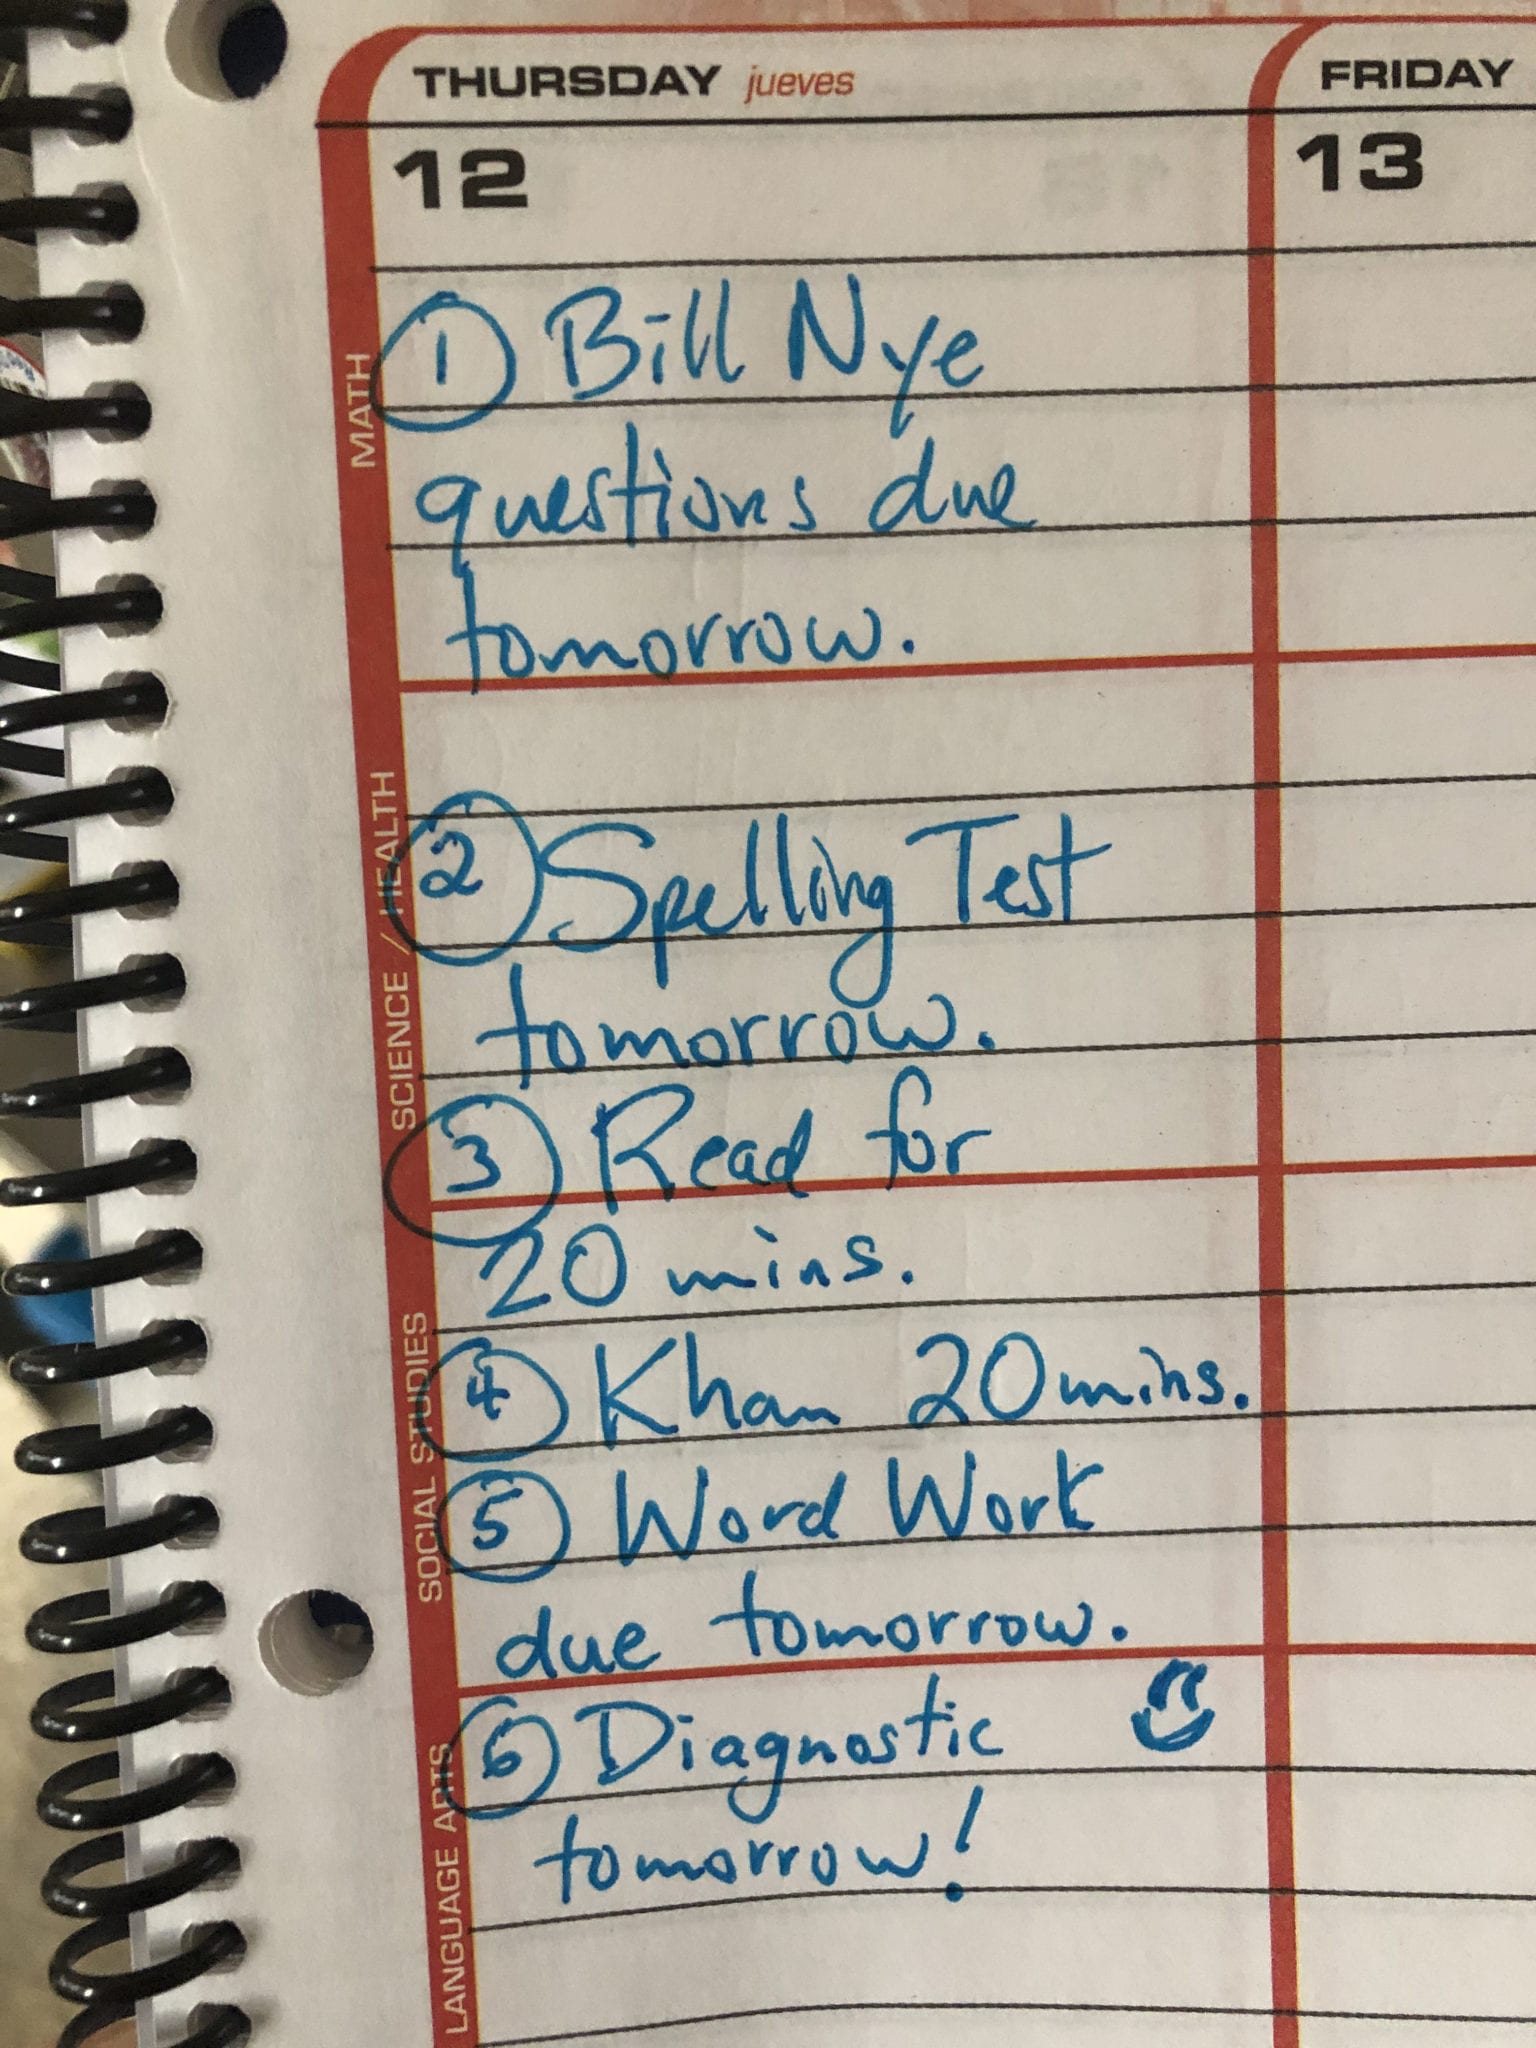 THURSDAY jueves
FRIDAY
12
13
MATH
① Bill Nye
questions due
tomorrow.
SCIENCE / HEALTH
② Spelling Test
tomorrow.
③ Read for
20 mins.
SOCIAL STUDIES
④ Khan 20 mins.
⑤ Word Work
due tomorrow.
LANGUAGE ARTS
⑥ Diagnostic
tomorrow!